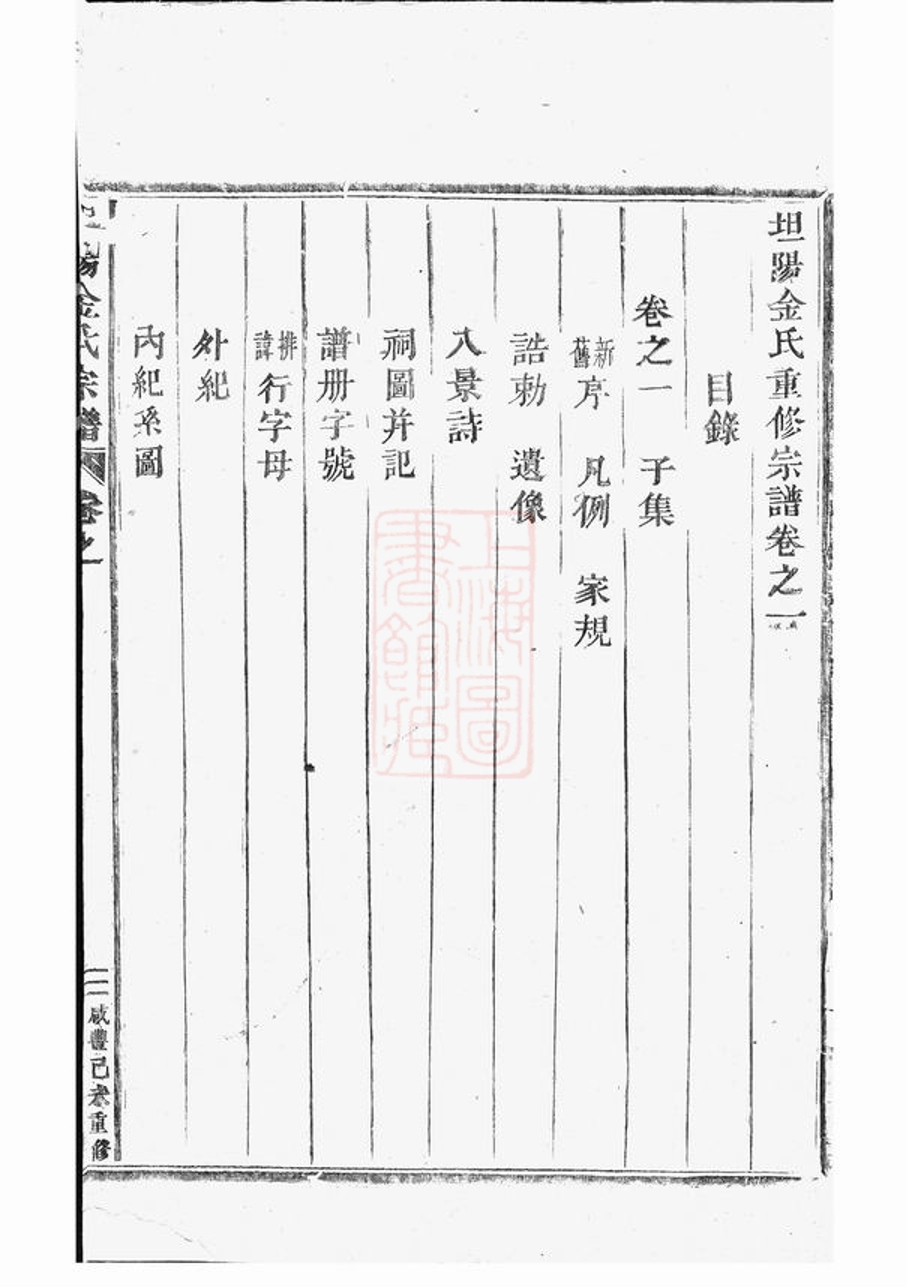 坦陽金氏重修宗譜卷之一
目錄
卷之一　子集
新舊序　凡例　家規
誥勅　遺像
八景詩
祠圖并記
譜册字號
排諱行字母
外紀
內紀系圖
陽金氏宗譜　卷之一
二　咸豐己未重修
上海圖書館藏